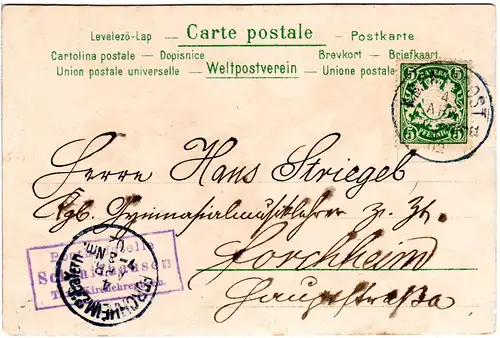 Levelezö-Lap — Carte postale — Postkarte
Cartolina postale — Dopisnice Brevkort — Briefkaart
Union postale universelle — Weltpostverein — Unione postale
5 BAYERN 5
5 PFENNIG 5
Herrn Hans Striegel
Kgl. Gymnasialmusiklehrer z. Zt.
Forchheim
Hauptstraße
FORCHHEIM Bayern
4 APR
Nm.